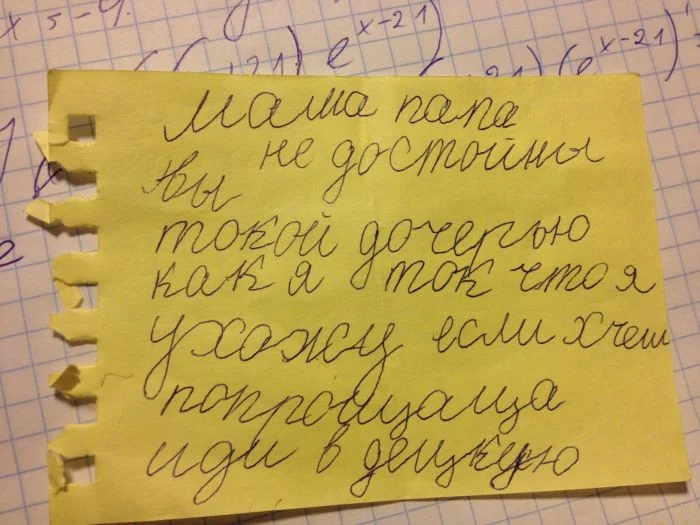 x = -4.
e^(x-21)
(e^(x-21)
мама папа
вы не достойны
токой дочерью
как я ток что я
ухожу если хчеш
попроицаица
иди в децкую